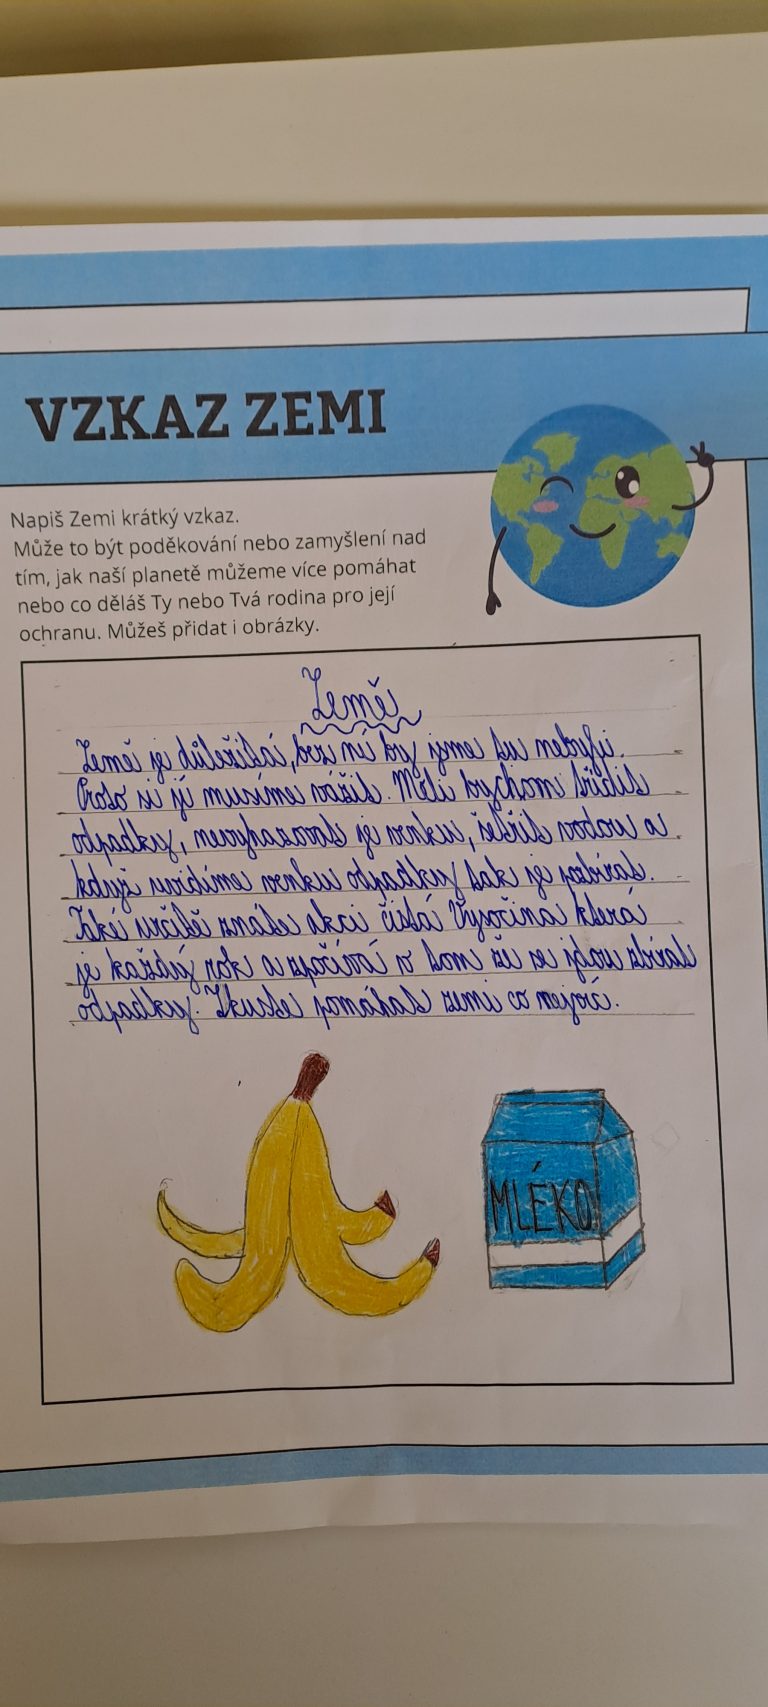 VZKAZ ZEMI
Napiš Zemi krátký vzkaz.
Může to být poděkování nebo zamyšlení nad
tím, jak naší planetě můžeme více pomáhat
nebo co děláš Ty nebo Tvá rodina pro její
ochranu. Můžeš přidat i obrázky.
Země
Země je důležitá, bez ní by jsme tu nebyli.
Proto si jí musíme vážit. Měli bychom třídit
odpadky, nevyhazovat je venku, šetřit vodou a
když uvidíme venku odpadky tak je pozbírat.
Také určitě znáte akci čistá Vysočina která
je každý rok a spočívá v tom že se jdou sbírat
odpadky. Zkuste pomáhat zemi co nejvíc.
MLÉKO